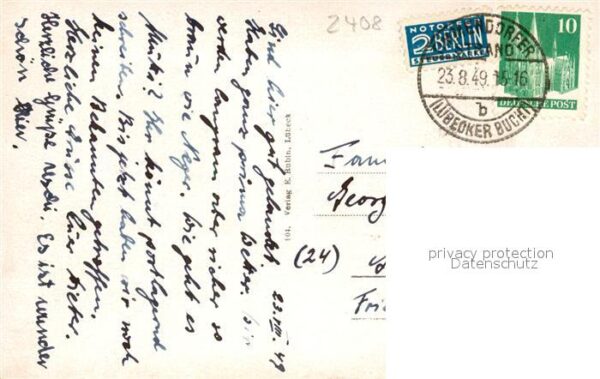 2408
NOTOPFER
2 BERLIN
STEUERMARKE
10
DEUTSCHE POST
23.8.49.15-16
b
(LÜBECKER BUCHT)
23. VIII. 49
Sind hier gut gelandet
Haben ganz prima Wetter.
werden langsam aber sicher so
braun wie Neger. Wie geht es
Mutti? Ihr könnt postlagernd
schreiben. Bis jetzt haben wir noch
keinen Bekannten getroffen.
Herzliche Grüsse Euer Dieter.
Herzliche Grüße Es ist wunder
schön hier.
104. Verlag E. Rubin, Lübeck
Fam
Georg
(24)
Frie
privacy protection
Datenschutz